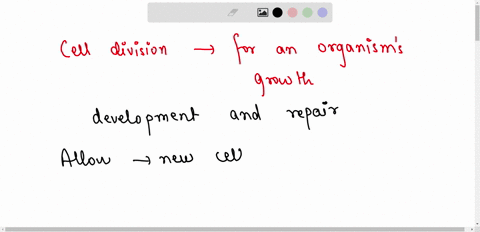 Cell division → for an organism's
growth
development and repair
Allow → new cell